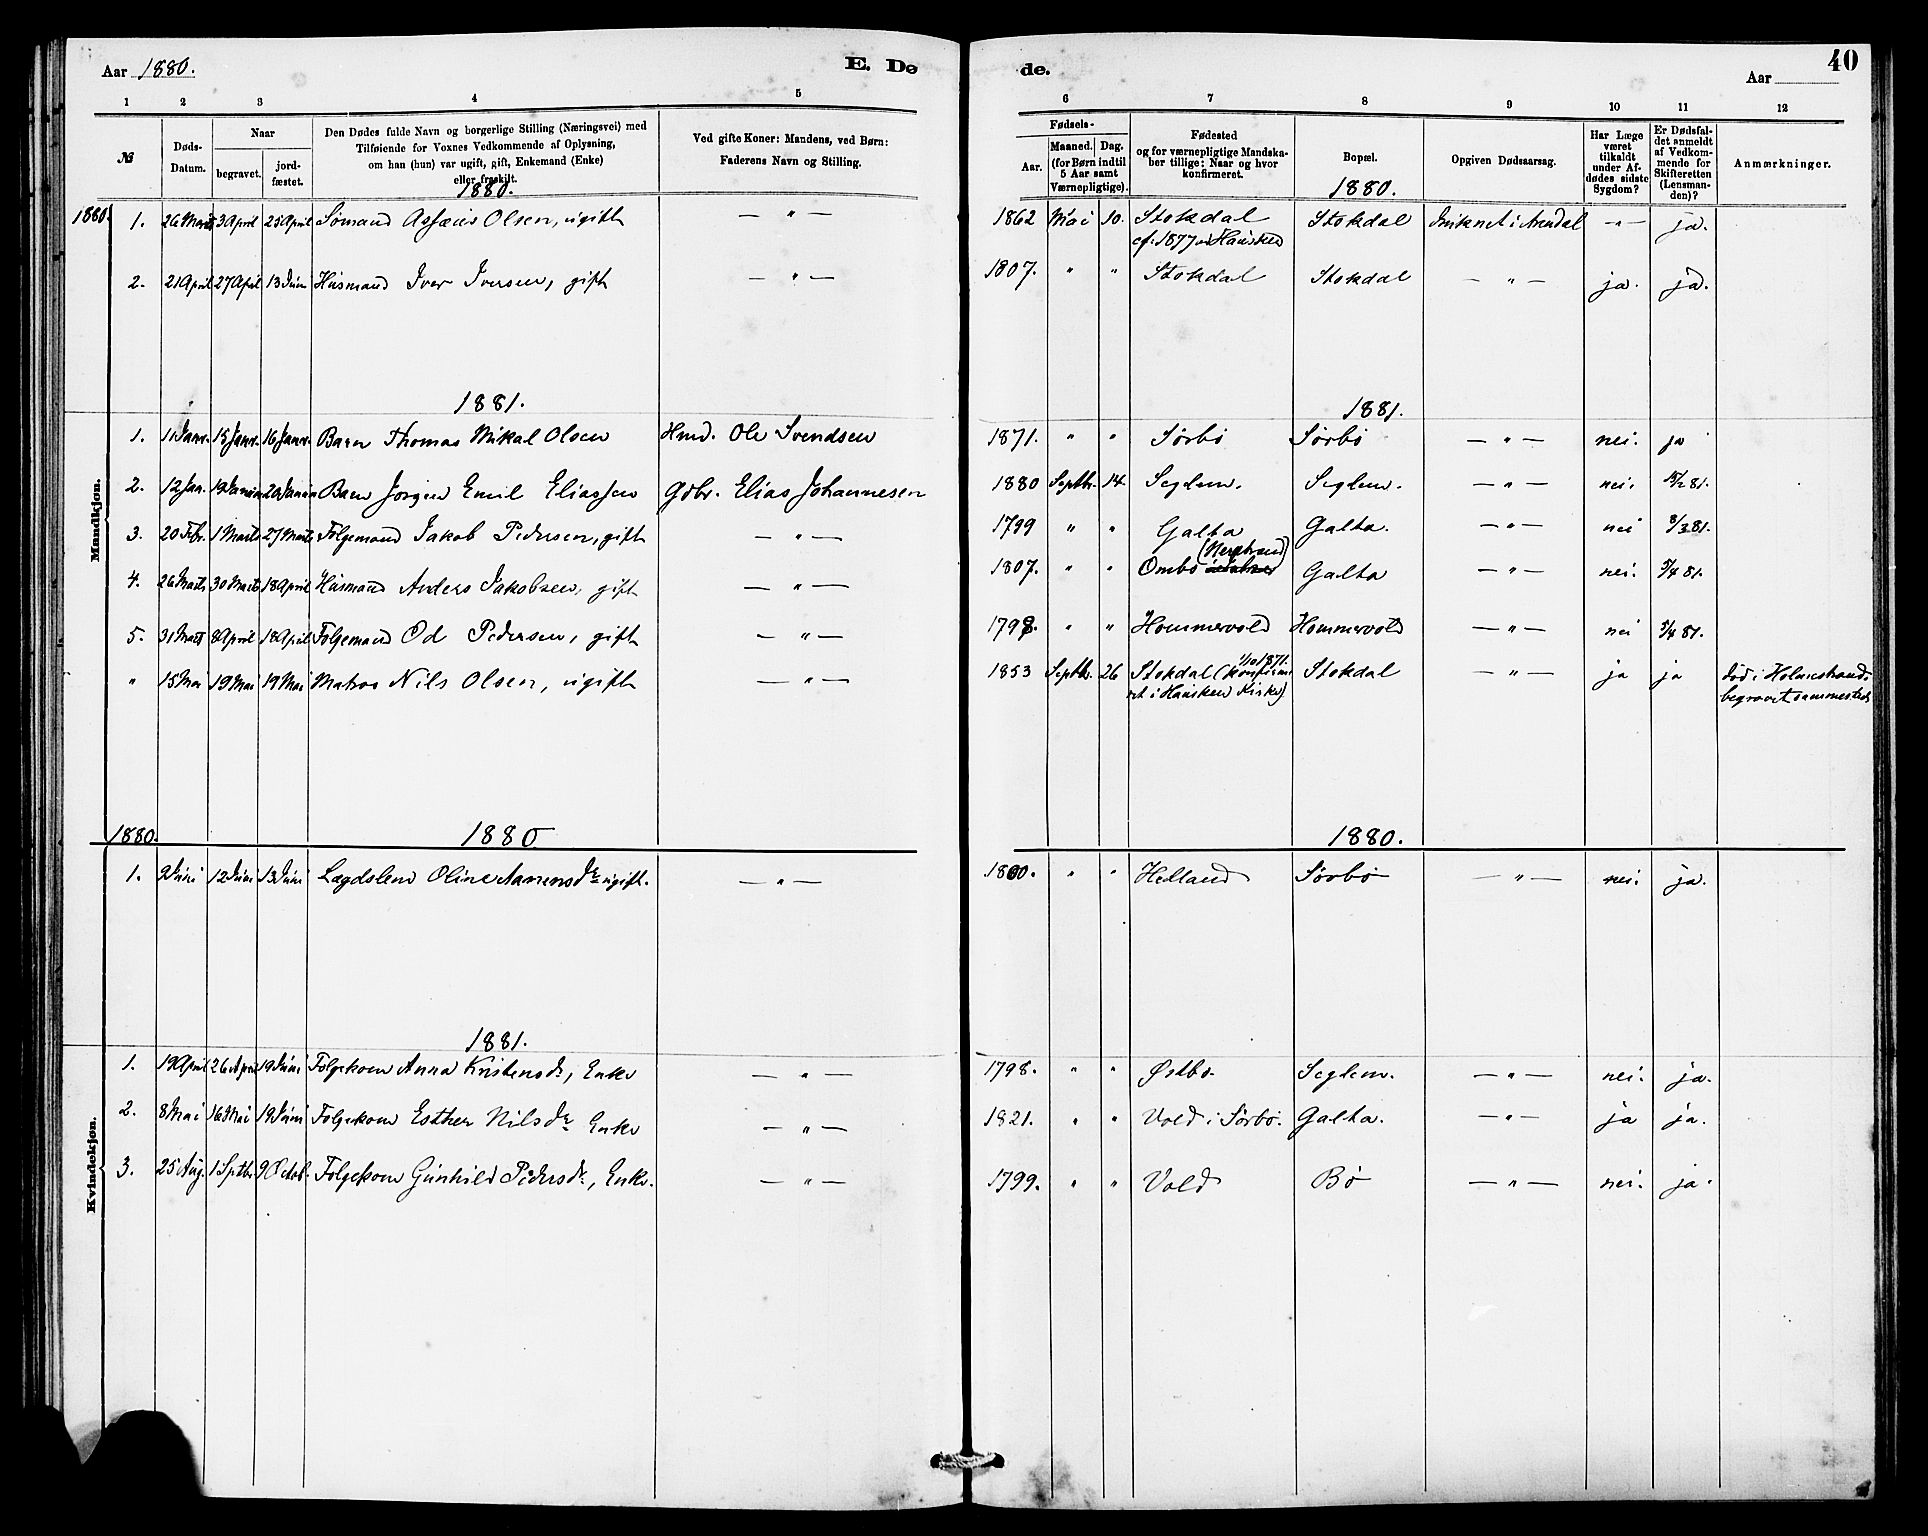 Aar 1880. E. Dø de. Aar 40
1 2 3 4 5 6 7 8 9 10 11 12
№
Døds-Datum.
Naar
begravet.
jord-fæstet.
Den Dødes fulde Navn og borgerlige Stilling (Næringsvei) med
Tilføiende for Voxnes Vedkommende af Oplysning,
om han (hun) var ugift, gift, Enkemand (Enke)
eller fraskilt.
Ved gifte Koner: Mandens, ved Børn:
Faderens Navn og Stilling.
Fødsels-
Aar.
Maaned. Dag.
(for Børn indtil
5 Aar samt
Værnepligtige).
Fødested
og for værnepligtige Mandska-
ber tillige: Naar og hvor
konfirmeret.
Bopæl.
Opgiven Dødsaarsag.
Har Læge
været
tilkaldt
under Af-
dødes sidste
Sygdom?
Er Dødsfal-
det anmeldt
af Vedkom-
mende for
Skifteretten
(Lensman-
den)?
Anmærkninger.
Mandkjøn.
1880. 1880. 1880.
1. 26 Marts 3 April 25 April Sømand Olsen, ugift — " — 1862 Mai 10. Stokdal Stokdal Druknet i Arendal — " — ja.
cf. 1877 i Hausken
2. 21 April 27 April 13 Juni Husmand Iver Iversen, gift — " — 1807. " " Stokdal Stokdal — " — ja. ja.
1881. 1881.
1. 11 Janr. 15 Janr. 16 Janr. Barn Thomas Mikal Olsen Hmd. Ole Svendsen 1871. " " Sørbø Sørbø — " — nei. ja
2. 12 Jan. 19 Januar 20 Januar Barn Jørgen Emil Eliassen Gdbr. Elias Johannesen 1880 Septbr. 14 Seglem. Seglem. — " — nei. 15/2 81.
3. 20 Febr. 1 Marts 27 Marts Følgemand Jakob Pedersen, gift — " — 1799 " " Galta Galta. — " — nei 8/3 81.
4. 26 Marts 30 Marts 18 April Husmand Anders Jakobsen, gift — " — 1807. " " Ombo (Nerstrand) Galta — " — nei. 5/4 81.
5. 31 Marts 8 April 18 April Følgemand Od Pedersen, gift — " — 1798. " " Hommervold Hommervold — " — nei 5/4 81.
" 15 Mai 19 Mai 19 Mai Matros Nils Olsen, ugift — " — 1853 Septbr. 26 Stokdal (1/10 1871. Konfirme- Stokdal — " — ja ja død i Holmestrand,
ret i Hausken Kirke) begravet sammesteds
1880. 1880 1880.
Kvindekjøn.
1. 9 Juni 12 Juni 13 Juni Lægdslem Oline Aanensdr. ugift. — " — 1800. " " Helland Sørbø — " — nei. ja.
1881.
1. 19 April 26 April 19 Juni Følgekone Anna Kristensdr, Enke — " — 1798. " " Østbø. Seglem. — " — nei. ja.
2. 8 Mai 16 Mai 19 Juni Følgekone Esther Nilsdr. Enke — " — 1821. " " Vold i Sørbø. Galta. — " — ja ja.
3. 25 Aug. 1 Septbr. 9 Octob. Følgekone Gunhild Pedersdr., Enke. — " — 1799. " " Vold Bø — " — nei. ja.